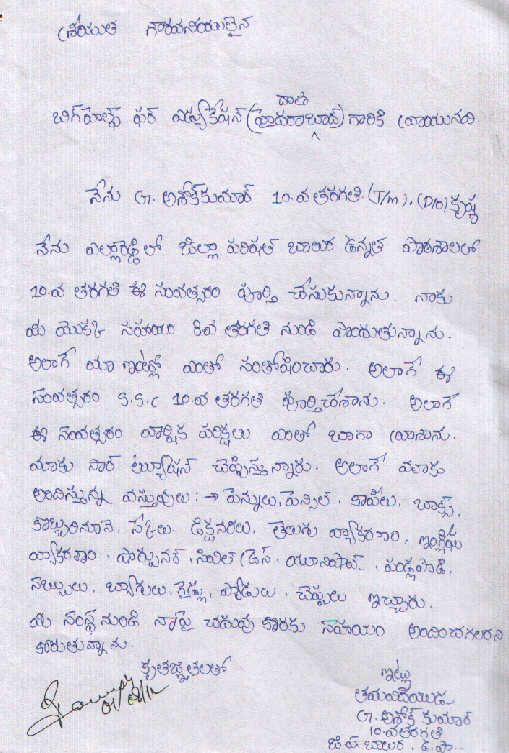 శ్రీయుత గౌరవనీయులైన
దాత
బిగ్ హెల్ప్ ఫర్ ఎడ్యుకేషన్ గారికి వ్రాయునది
నేను G. అశోక్ కుమార్ 10.వ తరగతి. (T/m). (D/o) కృష్ణ
నేను ఎల్లారెడ్డి లో జిల్లా పరిషత్ బాలుర ఉన్నత పాఠశాలలో
10.వ తరగతి ఈ సంవత్సరం పూర్తి చేసుకున్నాను. నాకు
మీ యొక్క సహాయం 8వ తరగతి నుండి పొందుతున్నాను.
అలాగే మా ఇంట్లో ఎంతో సంతోషించారు. అలాగే ఈ
సంవత్సరం S.S.C 10.వ తరగతి పూర్తిచేశాను. అలాగే
ఈ సంవత్సరం వార్షిక పరీక్షలు ఎంతో బాగా వ్రాశాను.
మాకు సార్ ట్యూషన్ చెప్పిస్తున్నారు. అలాగే మాకు
అందిస్తున్న వస్తువులు :→ పెన్నులు, పెన్సిల్. కాపీలు. బాక్స్,
కొబ్బరినూనె. స్కేలు. డిక్షనరీలు. తెలుగు వ్యాకరణం, ఇంగ్లీషు
వ్యాకరణం. షార్పునర్. సివిల్ డ్రెస్. యూనిఫామ్. పండ్లపొడి.
సబ్బులు. బ్యాగులు. బ్రెష్లు, ప్యాడులు. చెప్పులు ఇచ్చారు.
మీ సంస్థ నుండి నాపై చదువు కొరకు సహాయం అందించగలరని
కోరుతున్నాను.
కృతజ్ఞతలతో
ఇట్లు
తమవిధేయుడు
G. అశోక్ కుమార్
10.వతరగతి
జి.ప. బాలుర. ఉ. పా